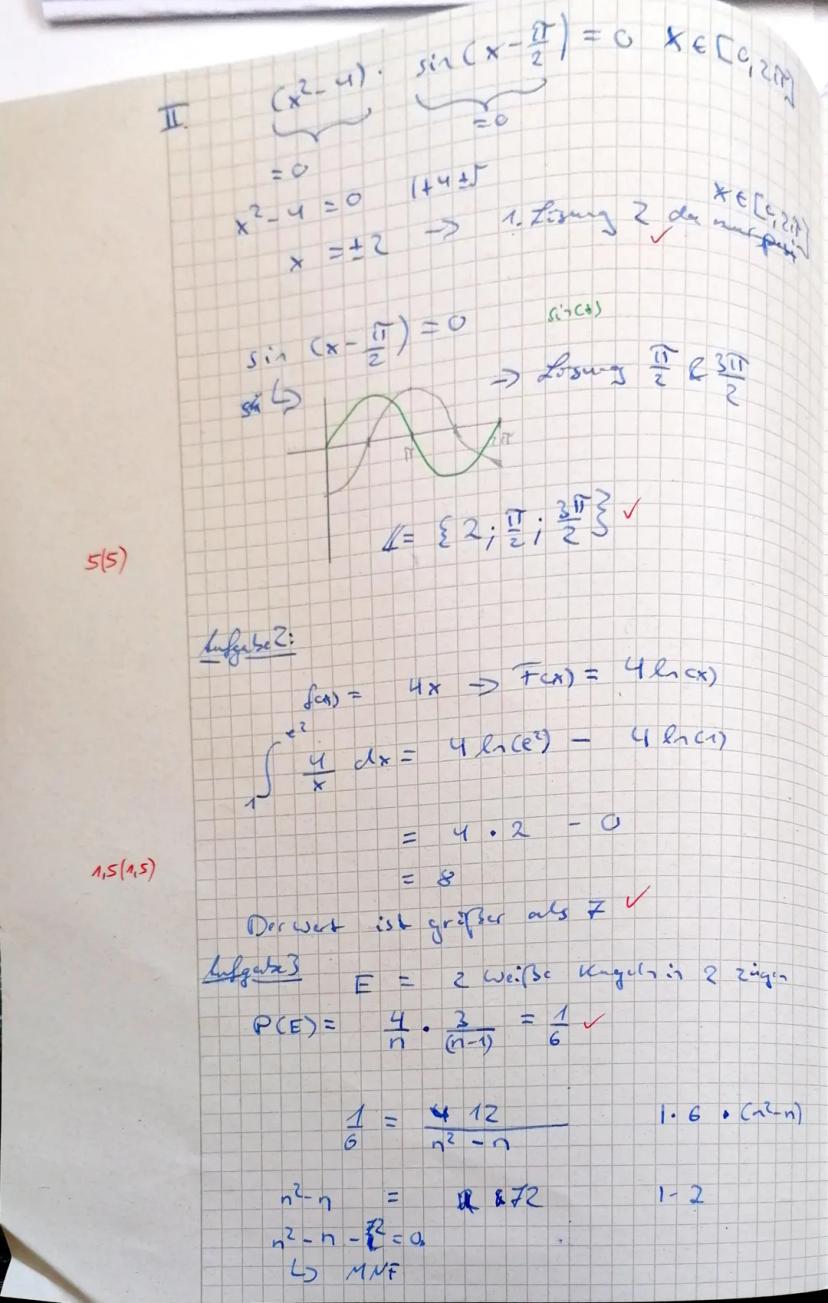 II. (x² - 4) · sin(x - π/2) = 0 x ∈ [0, 2π]
= 0 = 0
x² - 4 = 0 |+4 ±√
x = ±2 → 1. Lösung 2 da x ∈ [0, 2π] ✓
sin (x - π/2) = 0 sin(x)
↳ → Lösung π/2 & 3π/2
π 2π
𝕃 = {2; π/2; 3π/2} ✓
5(5)
Aufgabe 2:
f(x) = 4x → F(x) = 4 ln(x)
∫₁^e² 4/x dx = 4 ln(e²) - 4 ln(1)
= 4 · 2 - 0
1,5(1,5)
= 8
Der wert ist größer als 7 ✓
Aufgabe 3 E = 2 weiße Kugeln in 2 zügen
P(E) = 4/n · 3/(n-1) = 1/6 ✓
1/6 = 12/(n² - n) | · 6 · (n²-n)
n² - n = 72 | - 2
n² - n - 72 = 0
↳ MNF